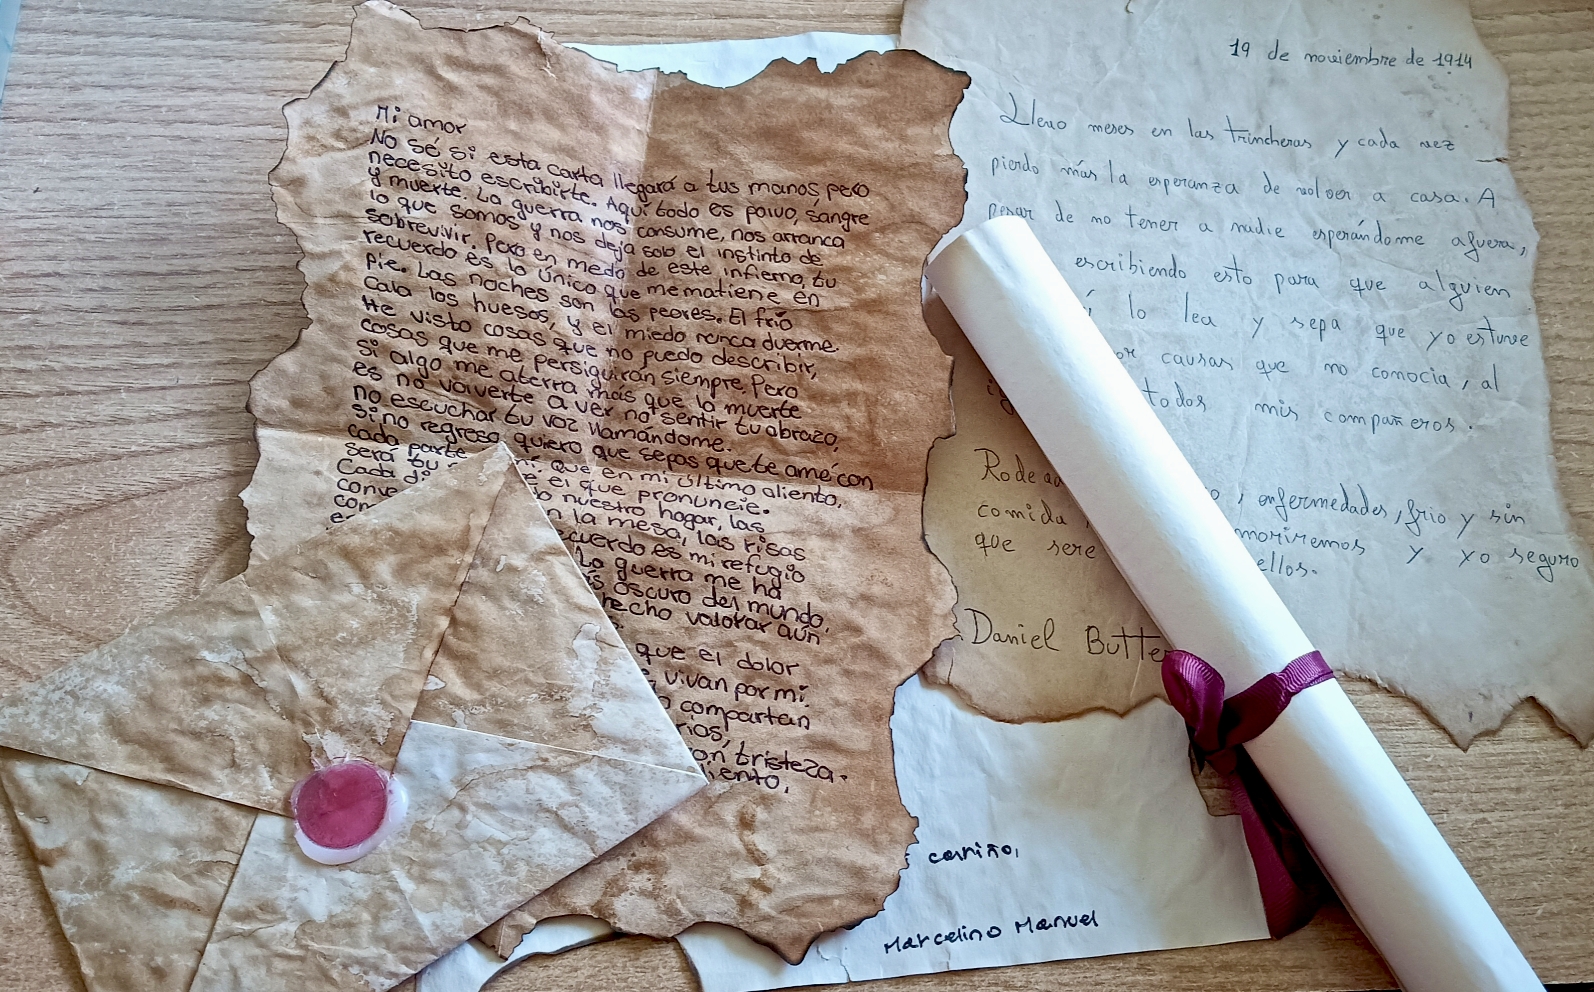 Mi amor
No sé si esta carta llegará a tus manos, pero
necesito escribirte. Aquí todo es polvo, sangre
y muerte. La guerra nos consume, nos arranca
lo que somos y nos deja solo el instinto de
sobrevivir. Pero en medo de este infierno, tu
recuerdo es lo único que me matiene en
pie. Las noches son las peores. El frío
cala los huesos, y el miedo nunca duerme.
He visto cosas que no puedo describir,
cosas que me persiguirán siempre. Pero
si algo me aterra más que la muerte
es no volverte a ver no sentir tu abrazo,
no escuchar tu voz llamándome.
Si no regreso, quiero que sepas que te amé con
cada parte mí, que en mi último aliento,
será tu el que pronuncie.
Cada nuestro hogar, las
en la mesa, las risas
recuerdo es mi refugio
La guerra me ha
oscuro del mundo,
hecho valorar aún
que el dolor
vivan por mi.
compartan
tristeza.
19 de noviembre de 1914
Llevo meses en las trincheras y cada vez
pierdo más la esperanza de volver a casa. A
pesar de no tener a nadie esperándome afuera,
escribiendo esto para que alguien
lo lea y sepa que yo estuve
por causas que no conocia, al
todos mis compañeros.
enfermedades, frio y sin
comida
que sere moriremos y yo seguro
ellos.
Daniel
cariño,
Marcelino Manuel